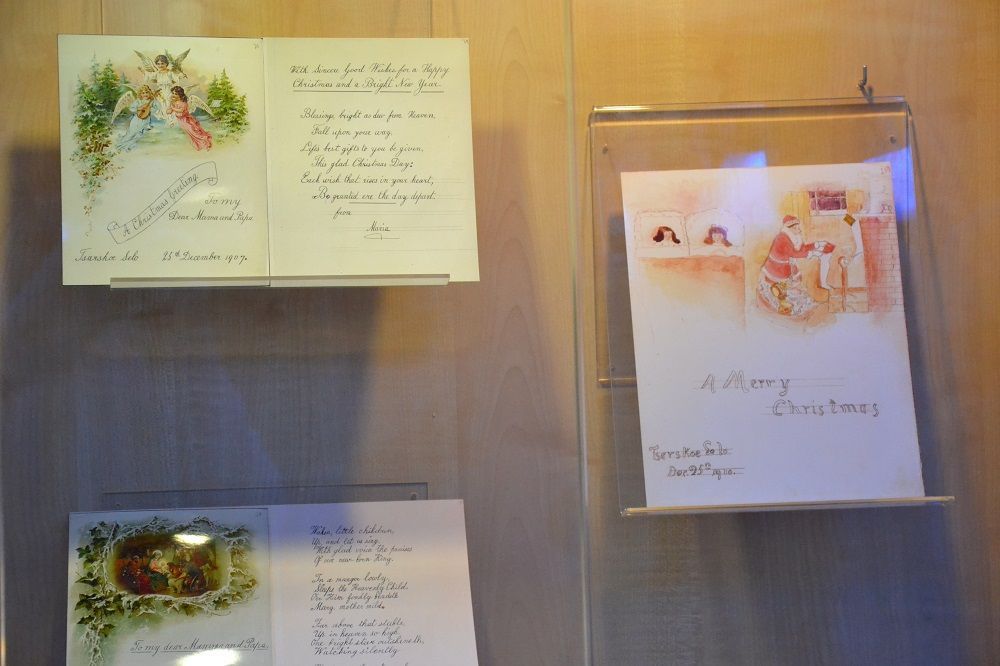 A Christmas Greeting
To my
Dear Mama and Papa.
Tsarskoe Selo 25th December 1907.
With Sincere Good Wishes for a Happy
Christmas and a Bright New Year.
Blessings bright as dew from Heaven,
Fall upon your way.
Life's best gifts to you be given,
This glad Christmas Day;
Each wish that rises in your heart,
Be granted ere the day depart.
from
Maria
A Merry
Christmas
Tserskoe Selo
Dec. 25th 1910.
To my dear Mamma and Papa.
Waken, little children,
Up and let us sing,
With glad voice the praises
Of our new-born King.
In a manger lowly,
Sleeps the Heavenly Child,
O'er Him fondly bendeth
Mary, mother mild.
Far above that stable,
Up in heaven so high
One bright star outshineth,
Watching silently.